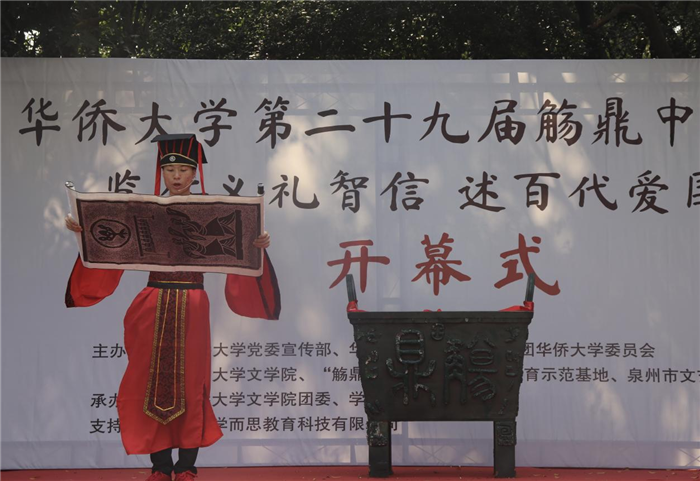 华侨大学第二十九届觞鼎中
义礼智信 述百代爱国
开幕式
主办
大学党委宣传部、华
团华侨大学委员会
大学文学院、“觞鼎
育示范基地、泉州市文
承办
大学文学院团委、学
支持
学而思教育科技有限公司
觞鼎